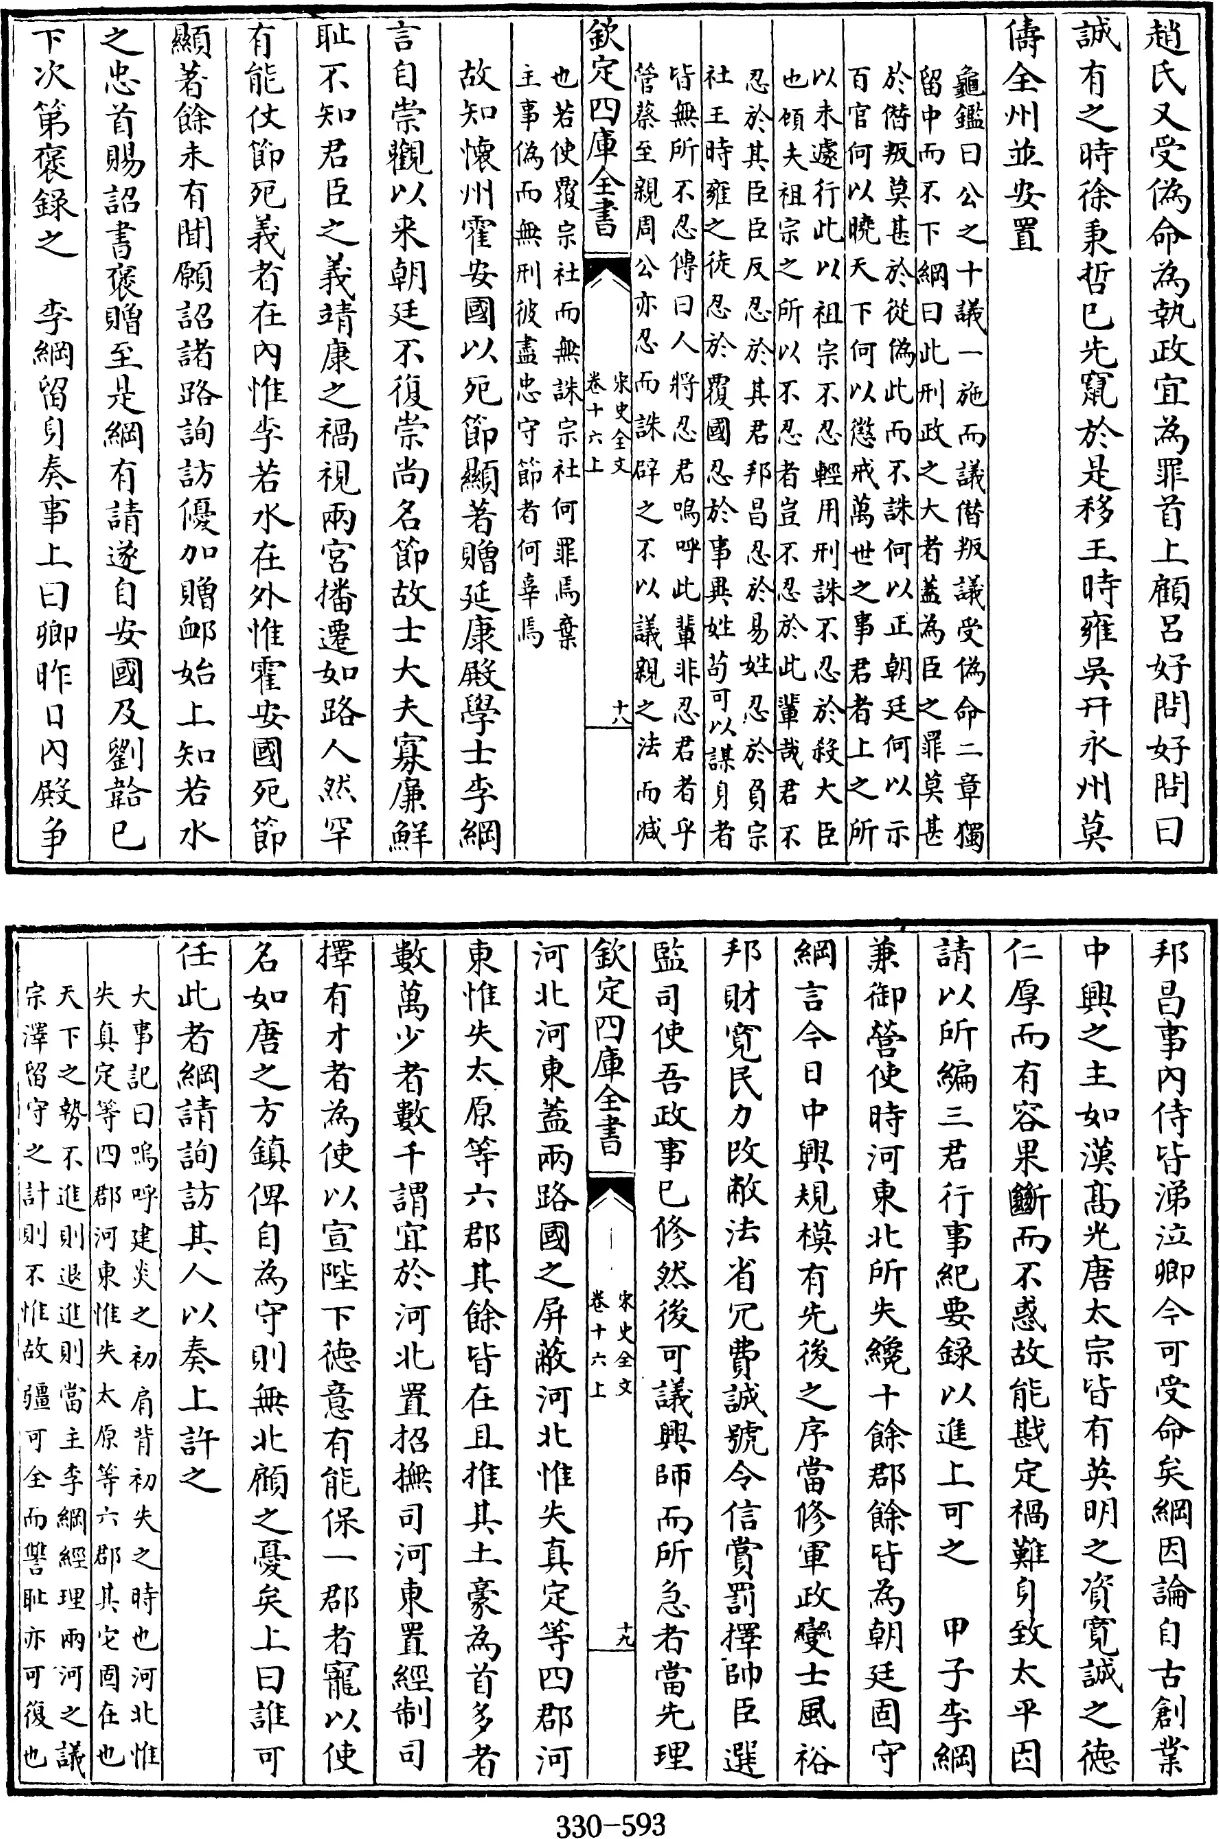 趙氏又受偽命為執政宜為罪首上顧呂好問好問曰
誠有之時徐秉哲已先竄於是移王時雍吳幵永州莫
儔全州並安置
龜鑑曰公之十議一施而議僣叛議受偽命二章獨
留中而不下綱曰此刑政之大者蓋為臣之罪莫甚
於僣叛莫甚於從偽此而不誅何以正朝廷何以示
百官何以曉天下何以懲戒萬世之事君者上之所
以未遽行此以祖宗不忍輕用刑誅不忍於殺大臣
也傾夫祖宗之所以不忍者豈不忍於此輩哉君不
忍於其臣臣反忍於其君邦昌忍於易姓忍於負宗
社王時雍之徒忍於覆國忍於事異姓苟可以謀身者
皆無所不忍傳曰人將忍君嗚呼此輩非忍君者乎
管蔡至親周公亦忍而誅辟之不以議親之法而减
欽定四庫全書
宋史全文
卷十六上
十八
也若使覆宗社而無誅宗社何罪焉棄
主事偽而無刑彼盡忠守節者何辜焉
故知懷州霍安國以死節顯著贈延康殿學士李綱
言自崇觀以来朝廷不復崇尚名節故士大夫寡廉鮮
耻不知君臣之義靖康之禍視兩宮播遷如路人然罕
有能仗節死義者在內惟李若水在外惟霍安國死節
顯著餘未有聞願詔諸路詢訪優加贈卹始上知若水
之忠首賜詔書褒贈至是綱有請遂自安國及劉韐已
下次第褒録之　李綱留身奏事上曰卿昨日內殿争
邦昌事內侍皆涕泣卿今可受命矣綱因論自古創業
中興之主如漢髙光唐太宗皆有英明之資寛誠之德
仁厚而有容果斷而不惑故能戡定禍難身致太平因
請以所編三君行事紀要録以進上可之　甲子李綱
兼御營使時河東北所失纔十餘郡餘皆為朝廷固守
綱言今日中興規模有先後之序當修軍政變士風裕
邦財寛民力改敝法省冗費誠號令信賞罰擇帥臣選
監司使吾政事已修然後可議興師而所急者當先理
欽定四庫全書
宋史全文
卷十六上
十九
河北河東蓋兩路國之屏蔽河北惟失真定等四郡河
東惟失太原等六郡其餘皆在且推其土豪為首多者
數萬少者數千謂宜於河北置招撫司河東置經制司
擇有才者為使以宣陛下徳意有能保一郡者寵以使
名如唐之方鎮俾自為守則無北顧之憂矣上曰誰可
任此者綱請詢訪其人以奏上許之
大事記曰嗚呼建炎之初肩背初失之時也河北惟
失真定等四郡河東惟失太原等六郡其它固在也
天下之勢不進則退進則當主李綱經理兩河之議
宗澤留守之計則不惟故疆可全而讐耻亦可復也
330-593